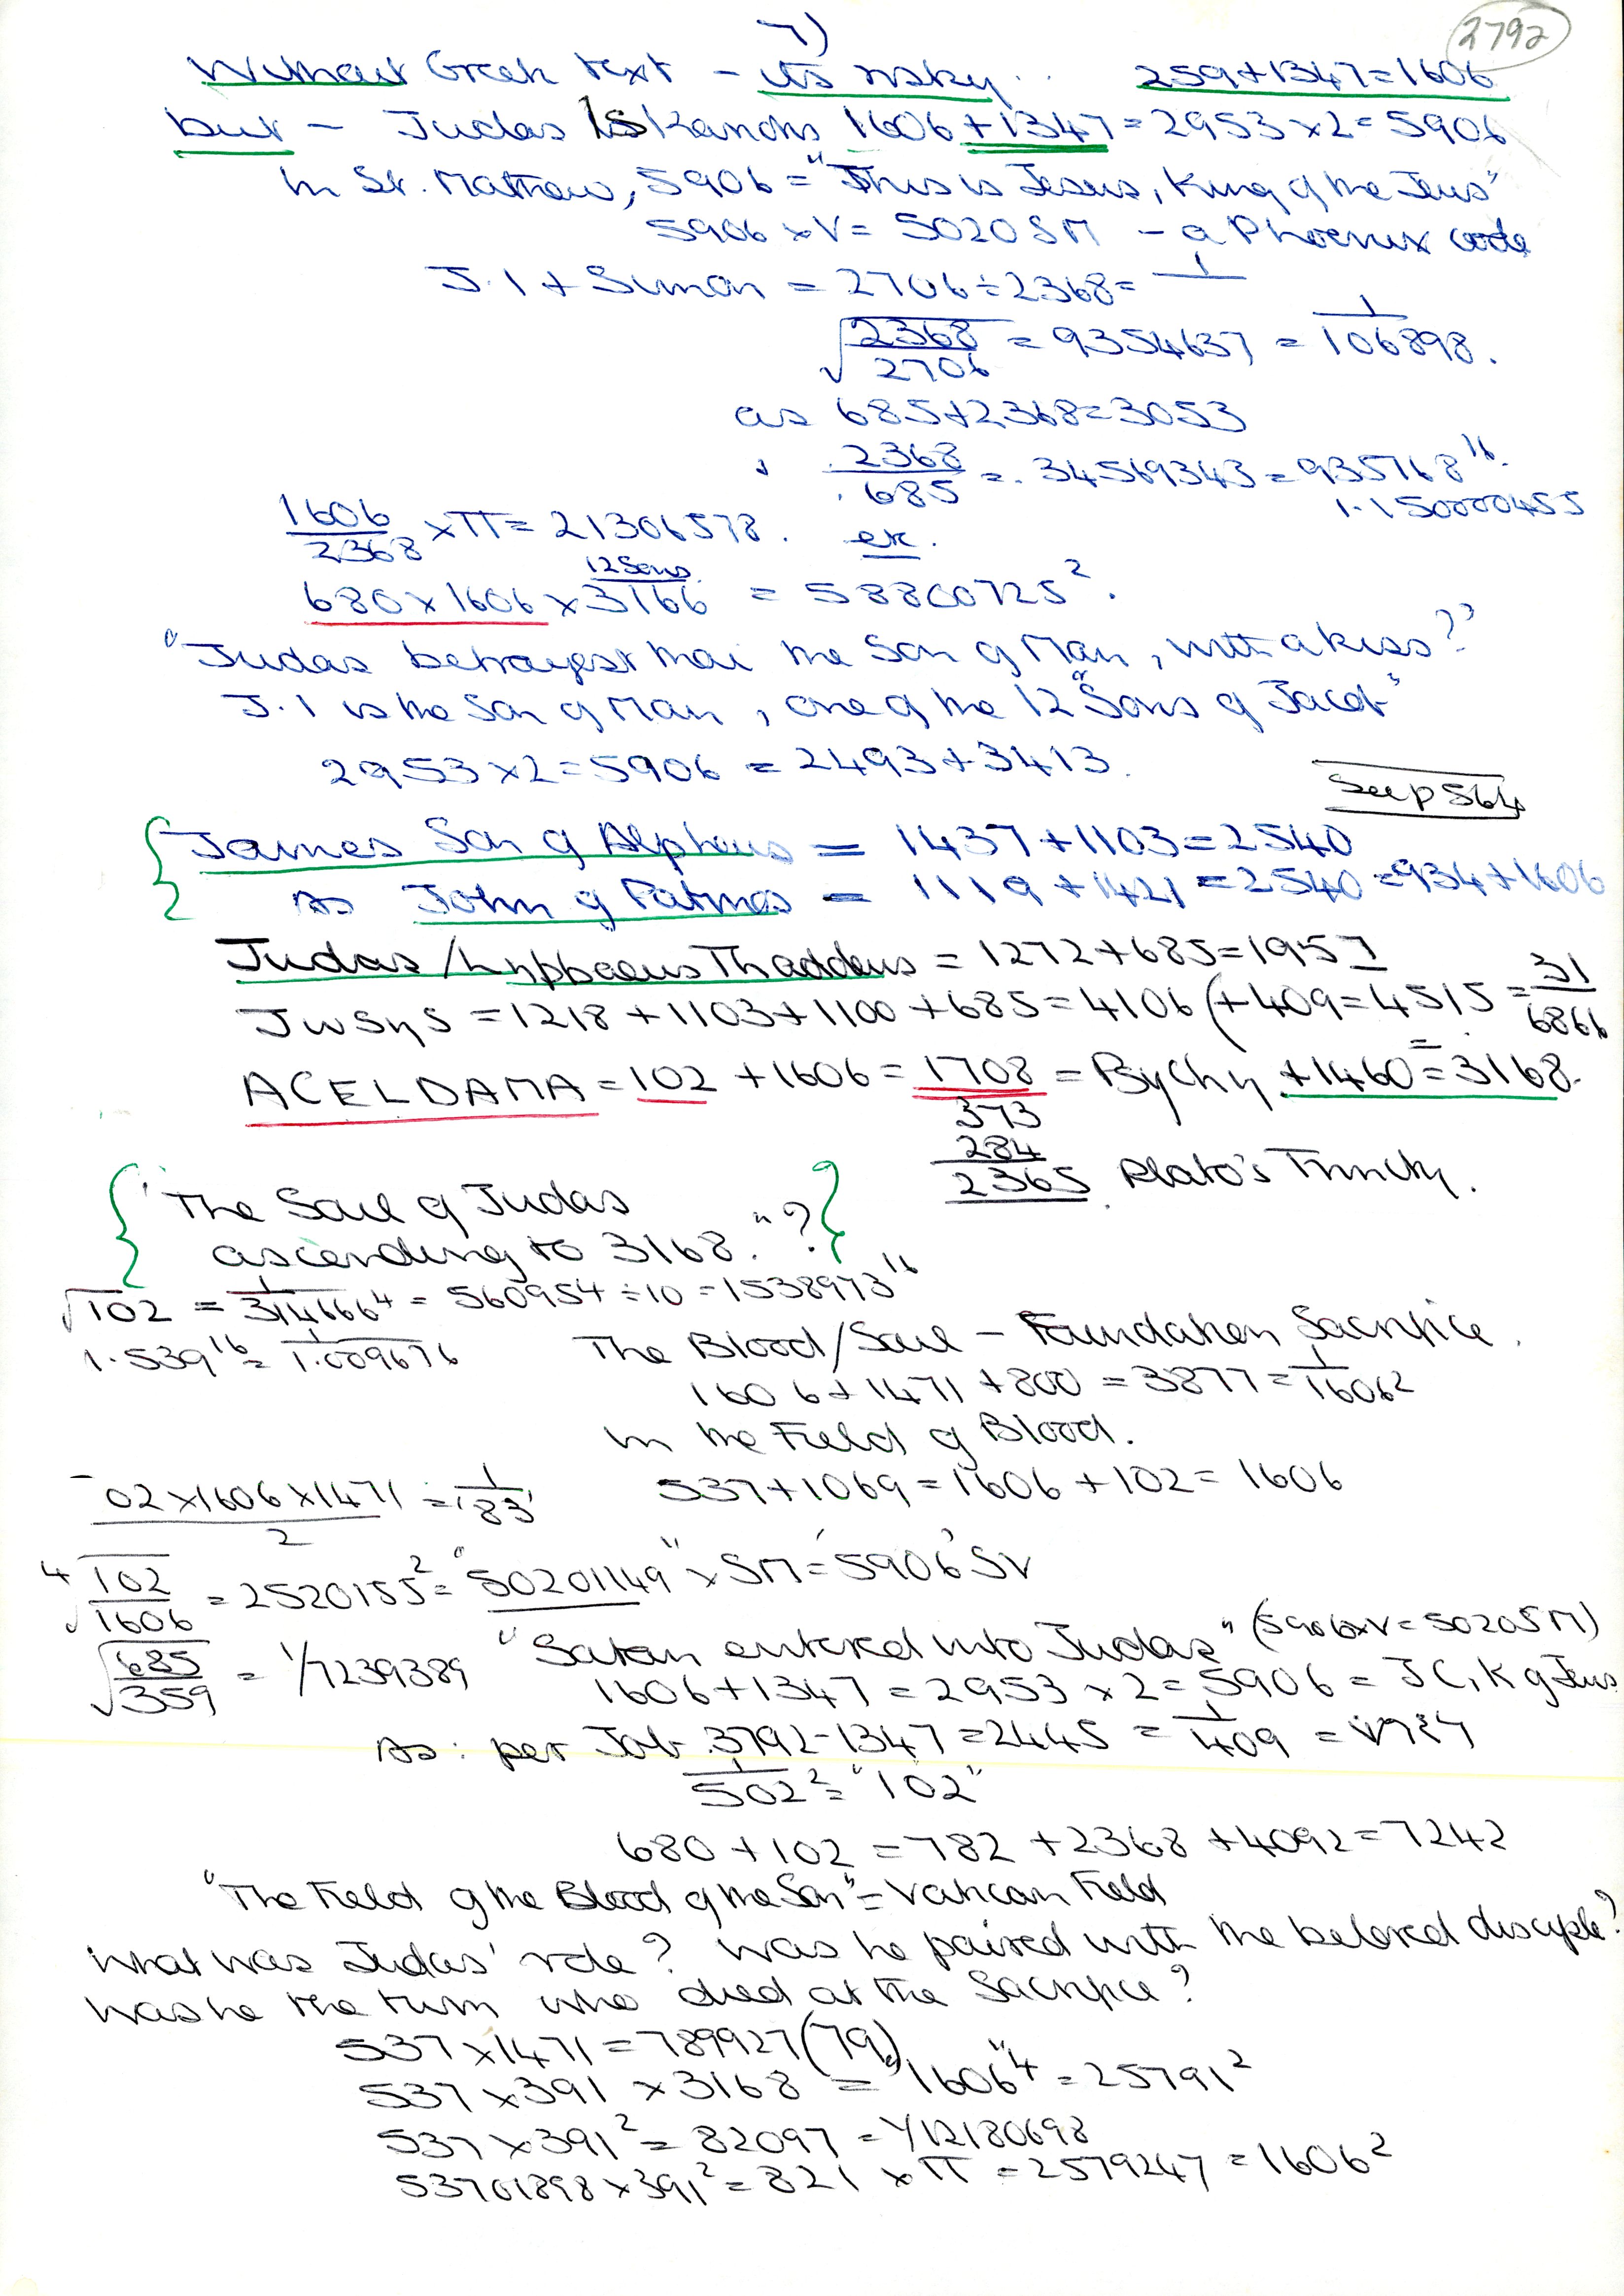 7)
2792
Without Greek text - its risky .. 259+1347=1606
but - Judas Iskariotis 1606+1347=2953x2=5906
In St. Matthew, 5906="This is Jesus, King of the Jews"
5906 x V= 5020SM - a Phoenix code
J.1 + Simon = 2706÷2368= 1/
√2368/2706 = 9354637 = 1/106898.
as 685+2368=3053
2368/.685 = .34569343=935768¹⁶.
1.150000455
1606/2368 xπ= 21306578. etc.
12 Sons
680x1606x3166 = 58860725².
"Judas betrayest thou the Son of Man, with a kiss?"
J.1 is the Son of Man, one of the 12 "Sons of Jacob"
2953x2=5906 = 2493+3413.
See p 564
{James Son of Alpheus = 1437+1103=2540
As John of Patmos = 1119+1421=2540=934+1606
Judas/Lybbaeus Thaddeus = 1272+685=1957
JwSyS =1218+1103+1100+685=4106(+409=4515=31/6866
ACELDAMA=102+1606=1708=Bychy.+1460=3168.
373
284
2365. Plato's Trinity.
{"The Soul of Judas
ascending to 3168."?}
√102 = 1/314666⁴ = 560954÷10=1538973¹⁶
1.539¹⁶= 1/1.009676
The Blood/Soul - Foundation Sacrifice.
1606+1471+800=3877=1/1606²
in the Field of Blood.
02x1606x1471/2 = 1/183'
537+1069=1606+102=1606
⁴√102/1606 = 2520155²="50201149" x SM='5906'SV
√685/359 = 1/7239389
"Satan entered into Judas" (5906xV=5020SM)
1606+1347=2953x2=5906=JC,K of Jews
As: per Job.3792-1347=2445=1/409=
1/502²="102"
680+102=782+2368+4092=7242
"The Field of the Blood of the Son"=Vatican Field
What was Judas' role? Was he paired with the beloved disciple?
Was he the twin who died at the Sacrifice?
537x1471=789927(79)
537x391x3168="1606"⁴=25791²
537x391²=82097=1/12180698
53701898x391²=821xπ=2579247=1606²